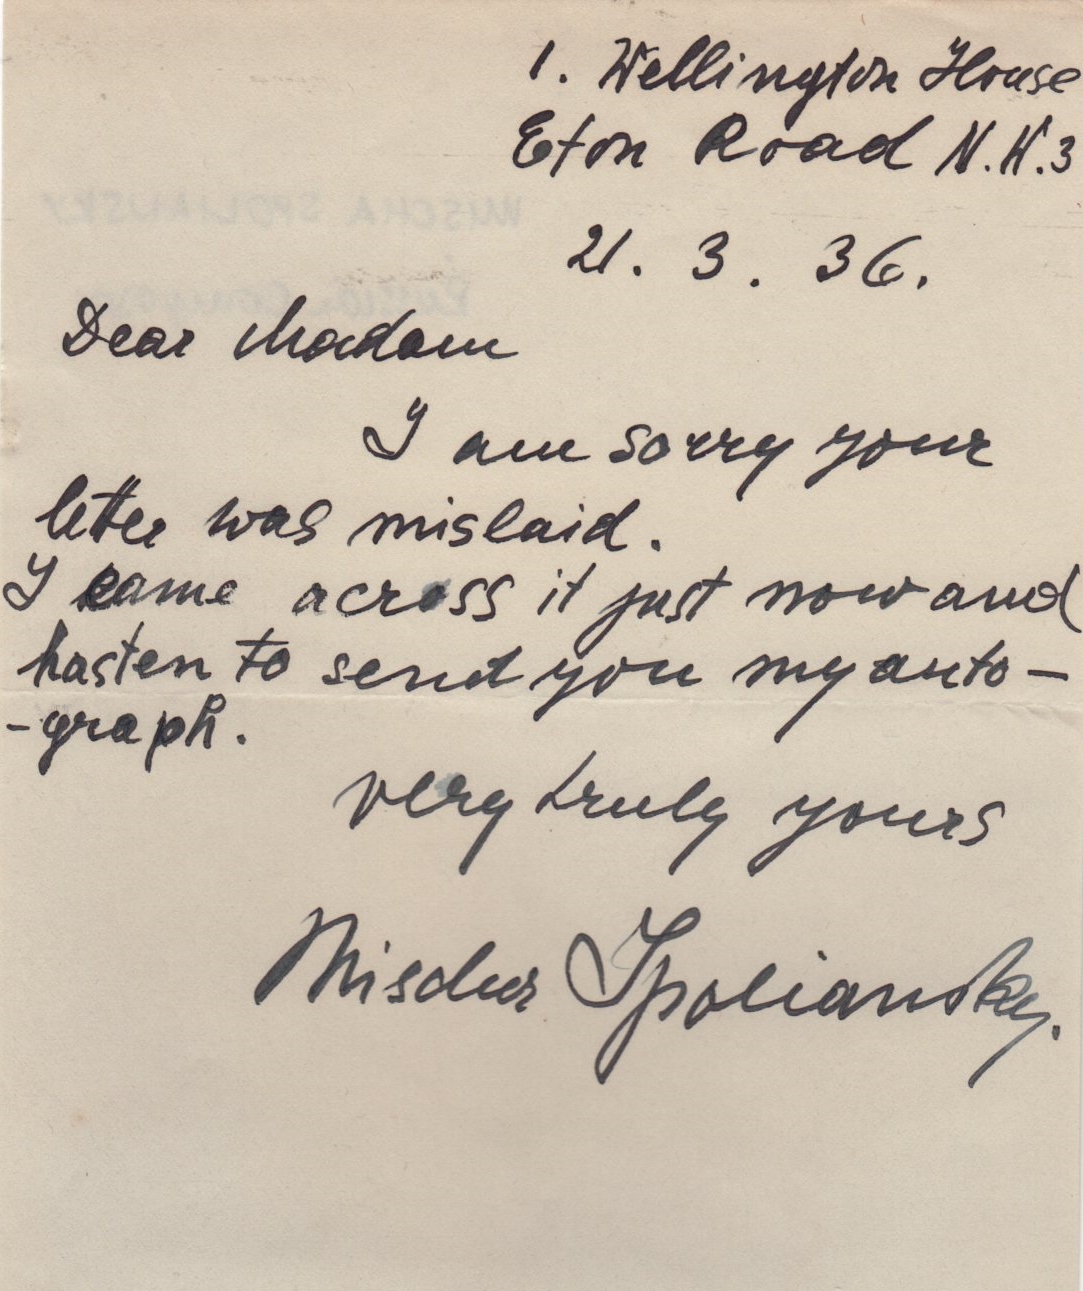 1. Wellington House
Eton Road N.W.3
21. 3. 36.
MISCHA SPOLIANSKY
Dear Madam
I am sorry your
letter was mislaid.
I came across it just now and
hasten to send you my auto-
-graph.
very truly yours
Mischa Spoliansky.